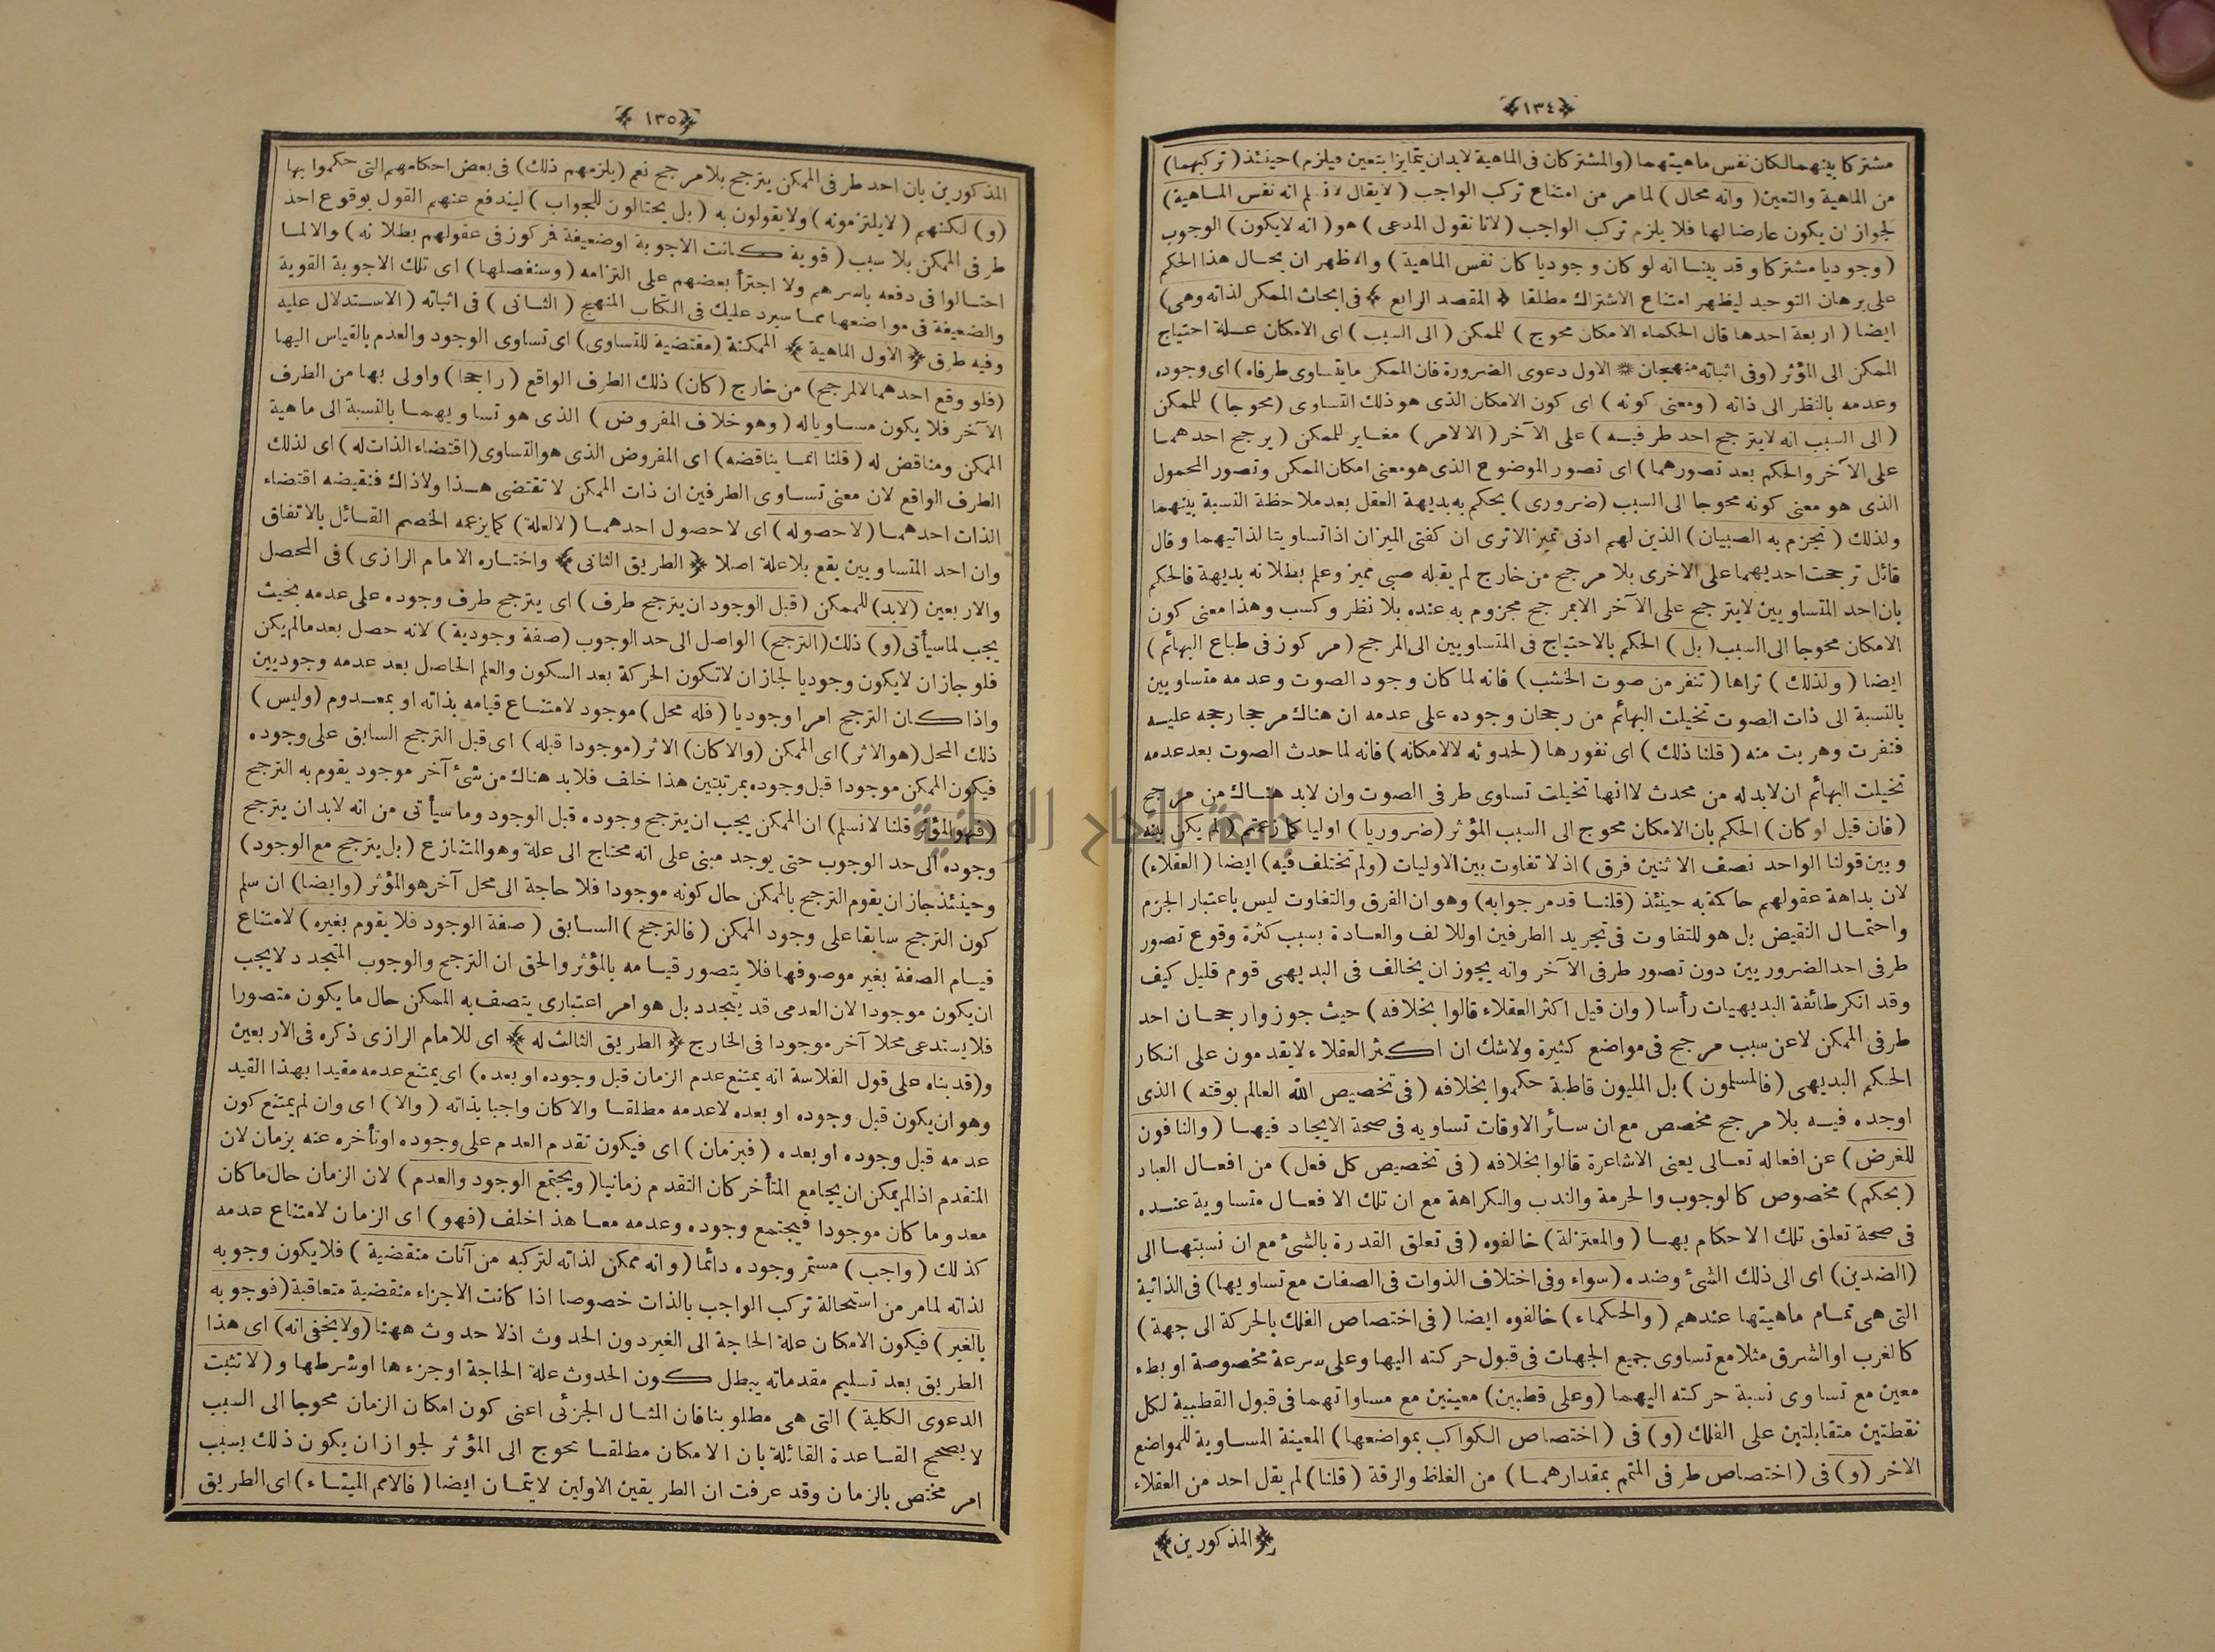 ﴿١٣٤﴾
مشتركا بينهما لكان نفس ماهيتهما (والمشتركان فى الماهية لابد ان يتمايزا بتعين فيلزم) حينئذ (تركبهما)
من الماهية والتعين (وانه محال) لما مر من امتناع تركب الواجب (لايقال لانسلم انه نفس الماهية)
لجواز ان يكون عارضا لها فلا يلزم تركب الواجب (لانا نقول المدعى) هو (انه لايكون) الوجوب
(وجوديا مشتركا وقد بينا انه لو كان وجوديا كان نفس الماهية) والاظهر ان يحال هذا الحكم
على برهان التوحيد ليظهر امتناع الاشتراك مطلقا ﴿المقصد الرابع﴾ فى ابحاث الممكن لذاته وهى)
ايضا (اربعة احدها قال الحكماء الامكان محوج) للممكن (الى السبب) اى الامكان علة احتياج
الممكن الى المؤثر (وفى اثباته منهجان * الاول دعوى الضرورة فان الممكن ما يتساوى طرفاه) اى وجوده
وعدمه بالنظر الى ذاته (ومعنى كونه) اى كون الامكان الذى هو ذلك التساوى (محوجا) للممكن
(الى السبب انه لايترجح احد طرفيه) على الآخر (الا لامر) مغاير للممكن (يرجح احدهما
على الآخر والحكم بعد تصورهما) اى تصور الموضوع الذى هو معنى امكان الممكن وتصور المحمول
الذى هو معنى كونه محوجا الى السبب (ضرورى) يحكم به بديهة العقل بعد ملاحظة النسبة بينهما
ولذلك (تجزم به الصبيان) الذين لهم ادنى تميز الاترى ان كفتى الميزان اذا تساويتا لذاتيهما وقال
قائل ترجحت احديهما على الاخرى بلا مرجح من خارج لم يقبله صبى مميز وعلم بطلانه بديهة فالحكم
بان احد المتساويين لايترجح على الآخر الابمرجح مجزوم به عنده بلا نظر وكسب وهذا معنى كون
الامكان محوجا الى السبب (بل) الحكم بالاحتياج فى المتساويين الى المرجح (مركوز فى طباع البهائم)
ايضا (ولذلك) تراها (تنفر من صوت الخشب) فانه لما كان وجود الصوت وعدمه متساويين
بالنسبة الى ذات الصوت تخيلت البهائم من رجحان وجوده على عدمه ان هناك مرجحا رجحه عليه
فنفرت وهربت منه (قلنا ذلك) اى نفورها (لحدوثه لالامكانه) فانه لما حدث الصوت بعد عدمه
تخيلت البهائم ان لابد له من محدث لا انها تخيلت تساوى طرفى الصوت وان لابد هناك من مرجح
(فان قيل لو كان) الحكم بان الامكان محوج الى السبب المؤثر (ضروريا) اوليا كما زعمتم (لم يكن بينه
وبين قولنا الواحد نصف الاثنين فرق) اذ لا تفاوت بين الاوليات (ولم تختلف فيه) ايضا (العقلاء)
لان بداهة عقولهم حاكمة به حينئذ (قلنا قد مر جوابه) وهو ان الفرق والتفاوت ليس باعتبار الجزم
واحتمال النقيض بل هو للتفاوت فى تجريد الطرفين او للالف والعادة بسبب كثرة وقوع تصور
طرفى احد الضروريين دون تصور طرفى الآخر وانه يجوز ان يخالف فى البديهى قوم قليل كيف
وقد انكر طائفة البديهيات رأسا (وان قيل اكثر العقلاء قالوا بخلافه) حيث جوزوا رجحان احد
طرفى الممكن لا عن سبب مرجح فى مواضع كثيرة ولاشك ان اكثر العقلاء لايقدمون على انكار
الحكم البديهى (فالمسلمون) بل المليون قاطبة حكموا بخلافه (فى تخصيص الله العالم بوقته) الذى
اوجده فيه بلا مرجح مخصص مع ان سائر الاوقات تساويه فى صحة الايجاد فيها (والنافون
للغرض) عن افعاله تعالى يعنى الاشاعرة قالوا بخلافه (فى تخصيص كل فعل) من افعال العباد
(بحكم) مخصوص كالوجوب والحرمة والندب والكراهة مع ان تلك الافعال متساوية عنده
فى صحة تعلق تلك الاحكام بها (والمعتزلة) خالفوه (فى تعلق القدرة بالشئ مع ان نسبتها الى
(الضدين) اى الى ذلك الشئ وضده (سواء وفى اختلاف الذوات فى الصفات مع تساويها) فى الذاتية
التى هى تمام ماهيتها عندهم (والحكماء) خالفوه ايضا (فى اختصاص الفلك بالحركة الى جهة)
كالغرب او الشرق مثلا مع تساوى جميع الجهات فى قبول حركته اليها وعلى سرعة مخصوصة او بطء
معين مع تساوى نسبة حركته اليهما (وعلى قطبين) معينين مع مساواتهما فى قبول القطبية لكل
نقطتين متقابلتين على الفلك (و) فى (اختصاص الكواكب بمواضعها) المعينة المساوية للمواضع
الاخر (و) فى (اختصاص طرفى المتمم بمقدارهما) من الغلظ والرقة (قلنا) لم يقل احد من العقلاء
﴿المذكورين﴾
﴿١٣٥﴾
المذكورين بان احد طرفى الممكن يترجح بلا مرجح نعم (يلزمهم ذلك) فى بعض احكامهم التى حكموا بها
(و) لكنهم (لايلتزمونه) ولايقولون به (بل يحتالون للجواب) ليندفع عنهم القول بوقوع احد
طرفى الممكن بلا سبب (قوية كانت الاجوبة او ضعيفة فمركوز فى عقولهم بطلانه) والا لما
احتالوا فى دفعه باسرهم ولا اجترأ بعضهم على التزامه (وسنفصلها) اى تلك الاجوبة القوية
والضعيفة فى مواضعها مما سيرد عليك فى الكتاب المنهج (الثانى) فى اثباته (الاستدلال عليه
وفيه طرق ﴿الاول الماهية﴾ الممكنة (مقتضية للتساوى) اى تساوى الوجود والعدم بالقياس اليها
(فلو وقع احدهما لالمرجح) من خارج (كان) ذلك الطرف الواقع (راجحا) واولى بها من الطرف
الآخر فلا يكون مساويا له (وهو خلاف المفروض) الذى هو تساويهما بالنسبة الى ماهية
الممكن ومناقض له (قلنا انما يناقضه) اى المفروض الذى هو التساوى (اقتضاء الذات له) اى لذلك
الطرف الواقع لان معنى تساوى الطرفين ان ذات الممكن لا تقتضى هذا ولا ذاك فنقيضه اقتضاء
الذات احدهما (لا حصوله) اى لا حصول احدهما (لالعلة) كما يزعمه الخصم القائل بالاتفاق
وان احد المتساويين يقع بلا علة اصلا ﴿الطريق الثانى﴾ واختاره الامام الرازى) فى المحصل
والاربعين (لابد) للممكن (قبل الوجود ان يترجح طرف) اى يترجح طرف وجوده على عدمه بحيث
يجب لما سيأتى (و) ذلك (الترجح) الواصل الى حد الوجوب (صفة وجودية) لانه حصل بعد ما لم يكن
فلو جاز ان لايكون وجوديا لجاز ان لاتكون الحركة بعد السكون والعلم الحاصل بعد عدمه وجوديين
واذا كان الترجح امرا وجوديا (فله محل) موجود لامتناع قيامه بذاته او بمعدوم (وليس)
ذلك المحل (هو الاثر) اى الممكن (والا كان) الاثر (موجودا قبله) اى قبل الترجح السابق على وجوده
فيكون الممكن موجودا قبل وجوده بمرتبتين هذا خلف فلابد هناك من شئ آخر موجود يقوم به الترجح
(فهو المؤثر قلنا لانسلم) ان الممكن يجب ان يترجح وجوده قبل الوجود وما سيأتى من انه لابد ان يترجح
وجوده الى حد الوجوب حتى يوجد مبنى على انه محتاج الى علة وهو المتنازع (بل يترجح مع الوجود)
وحينئذ جاز ان يقوم الترجح بالممكن حال كونه موجودا فلا حاجة الى محل آخر هو المؤثر (وايضا) ان سلم
كون الترجح سابقا على وجود الممكن (فالترجح) السابق (صفة الوجود فلا يقوم بغيره) لامتناع
قيام الصفة بغير موصوفها فلا يتصور قيامه بالمؤثر والحق ان الترجح والوجوب المتجدد لايجب
ان يكون موجودا لان العدمى قد يتجدد بل هو امر اعتبارى يتصف به الممكن حال ما يكون متصورا
فلا يستدعى محلا آخر موجودا فى الخارج ﴿الطريق الثالث له﴾ اى للامام الرازى ذكره فى الاربعين
و(قد بناه على قول الفلاسفة انه يمتنع عدم الزمان قبل وجوده او بعده) اى يمتنع عدمه مقيدا بهذا القيد
وهو ان يكون قبل وجوده او بعده لا عدمه مطلقا والا كان واجبا بذاته (والا) اى وان لم يمتنع كون
عدمه قبل وجوده او بعده (فبزمان) اى فيكون تقدم العدم على وجوده او تأخره عنه بزمان لان
المتقدم اذا لم يمكن ان يجامع المتأخر كان التقدم زمانيا (ويجتمع الوجود والعدم) لان الزمان حال ما كان
معدوما كان موجودا فيجتمع وجوده وعدمه معا هذا خلف (فهو) اى الزمان لامتناع عدمه
كذلك (واجب) مستمر وجوده دائما (وانه ممكن لذاته لتركبه من آنات منقضية) فلا يكون وجوبه
لذاته لما مر من استحالة تركب الواجب بالذات خصوصا اذا كانت الاجزاء منقضية متعاقبة (فوجوبه
بالغير) فيكون الامكان علة الحاجة الى الغير دون الحدوث اذ لا حدوث ههنا (ولا يخفى انه) اى هذا
الطريق بعد تسليم مقدماته يبطل كون الحدوث علة الحاجة او جزءها او شرطها و(لا تثبت
الدعوى الكلية) التى هى مطلوبنا فان المثال الجزئى اعنى كون امكان الزمان محوجا الى السبب
لا يصحح القاعدة القائلة بان الامكان مطلقا محوج الى المؤثر لجواز ان يكون ذلك بسبب
امر مختص بالزمان وقد عرفت ان الطريقين الاولين لايتمان ايضا (فالامم الميتاء) اى الطريق
جامعة النجاح الوطنية